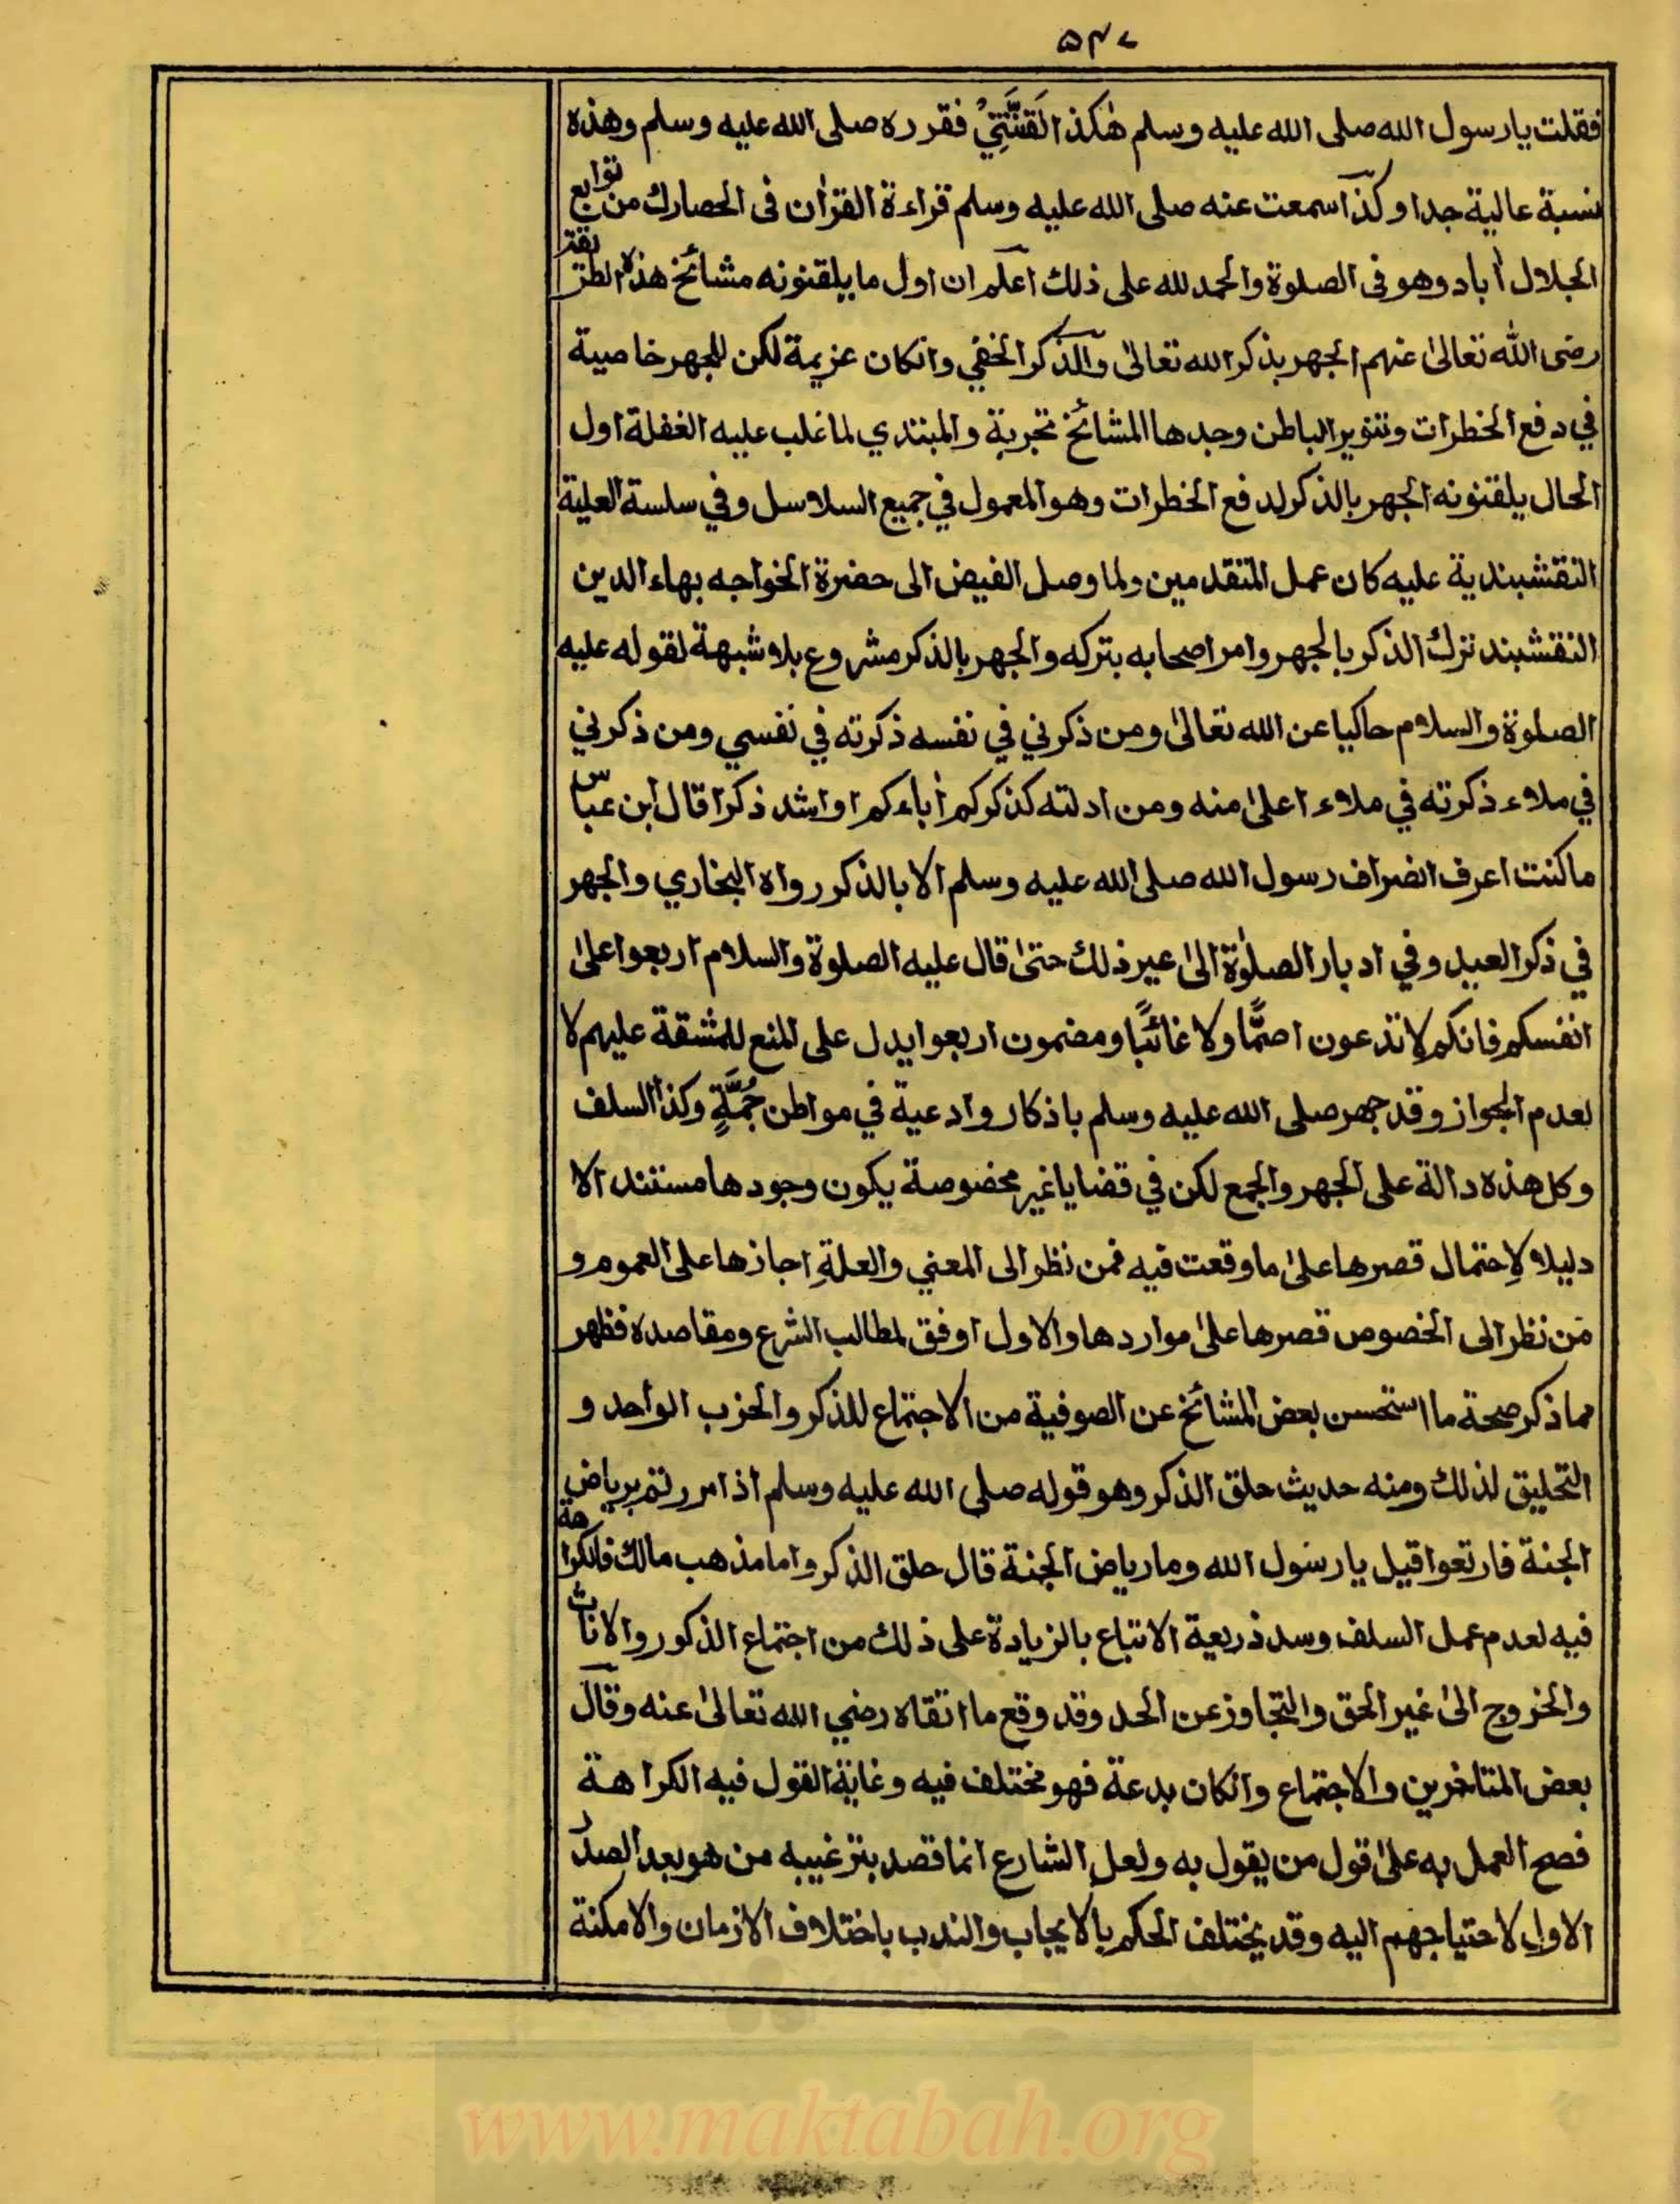 ۵۴۷
فقلت يا رسول الله صلى الله عليه وسلم هٰكذا لَقَّنَتَنِيْ فقرره صلى الله عليه وسلم وهذه
نسبة عالية جدا وكذا سمعت عنه صلى الله عليه وسلم قراءة القراٰن فى الحصارك من توابع
الجلال اٰباد وهو فى الصلوة والحمد لله على ذلك اعلم ان اول ما يلقنونه مشائخ هذه الطريقة
رضى الله تعالىٰ عنهم الجهر بذكر الله تعالىٰ والذكر الخفي وانكان عزيمة لكن للجهر خاصية
في دفع الخطرات وتنوير الباطن وجدها المشائخ تجربة والمبتدي لما غلب عليه الغفلة اول
الحال يلقنونه الجهر بالذكر لدفع الخطرات وهو المعمول في جميع السلاسل وفي سلسة العلية
النقشبندية عليه كان عمل المتقدمين ولما وصل الفيض الى حضرة الخواجه بهاء الدين
النقشبند ترك الذكر بالجهر وامر اصحابه بتركه والجهر بالذكر مشروع بلا شبهة لقوله عليه
الصلوة والسلام حاكيا عن الله تعالىٰ ومن ذكرني في نفسه ذكرته في نفسي ومن ذكرني
في ملاء ذكرته في ملاء اعلىٰ منه ومن ادلته كذكركم اٰباءكم او اشد ذكرا قال ابن عباس
ما كنت اعرف انصراف رسول الله صلى الله عليه وسلم الا بالذكر رواه البخاري والجهر
في ذكر العيد وفي ادبار الصلوٰة الىٰ غير ذلك حتىٰ قال عليه الصلوة والسلام اربعوا علىٰ
انفسكم فانكم لا تدعون اصمًّا ولا غائبًا ومضمون اربعوا يدل على المنع للمشقة عليهم لا
لعدم الجواز وقد جهر صلى الله عليه وسلم باذكار وادعية في مواطن جُمَّةٍ وكذا السلف
وكل هذه دالة على الجهر والجمع لكن في قضايا غير مخصوصة يكون وجودها مستندا لا
دليلا لاِحتمال قصرها علىٰ ما وقعت فيه فمن نظر الى المعني والعلةِ اجازها على العموم و
من نظر الى الخصوص قصرها علىٰ مواردها والاول اوفق لمطالب الشرع ومقاصده فظهر
مما ذكر صحة ما استحسن بعض المشائخ عن الصوفية من الاجتماع للذكر والحزب الواحد و
التحليق لذلك ومنه حديث حلق الذكر وهو قوله صلى الله عليه وسلم اذا مررتم برياض
الجنة فارتعوا قيل يا رسول الله وما رياض الجنة قال حلق الذكر واما مذهب مالك فالكراهة
فيه لعدم عمل السلف وسد ذريعة الاتباع بالزيادة على ذلك من اجتماع الذكور والاناث
والخروج الىٰ غير الحق والتجاوز عن الحد وقد وقع ما اتقاه رضي الله تعالىٰ عنه وقال
بعض المتاخرين والاجتماع وانكان بدعة فهو مختلف فيه وغاية القول فيه الكراهة
فصح العمل به علىٰ قول من يقول به ولعل الشارع انما قصد بترغيبه من هو بعد الصدر
الاول لاحتياجهم اليه وقد يختلف الحكم بالايجاب والندب باختلاف الازمان والامكنة
www.maktabah.org